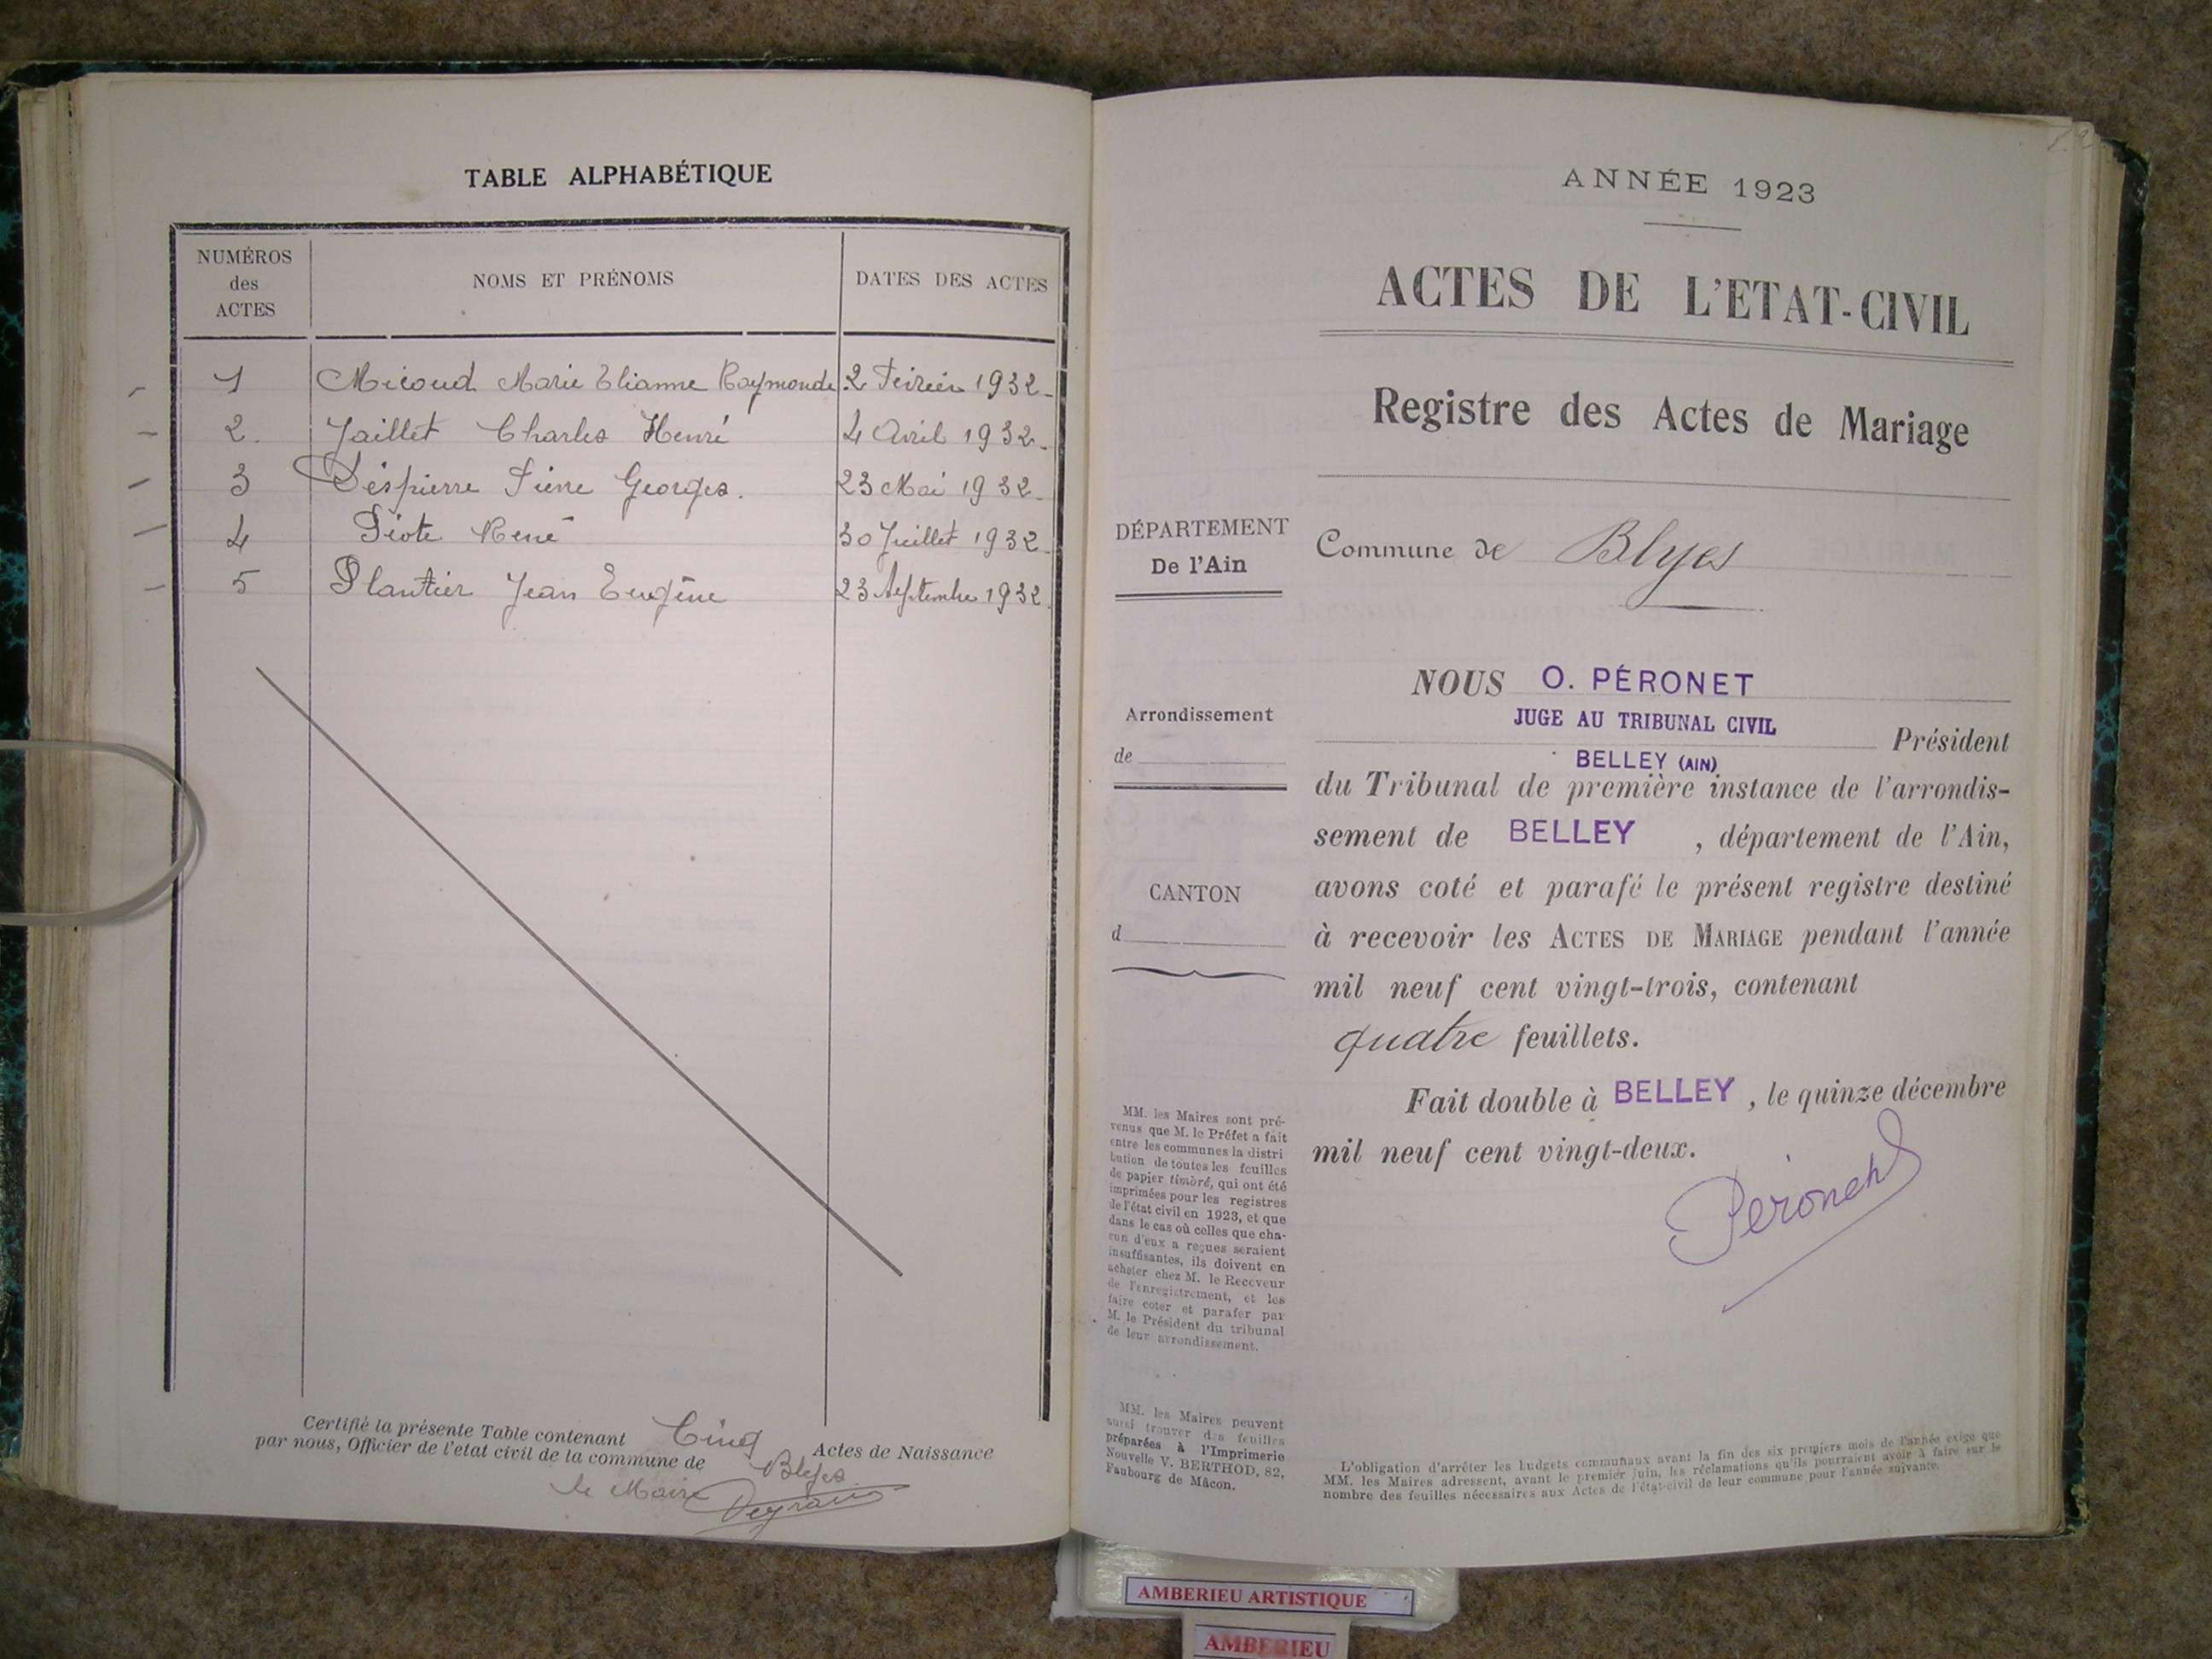 TABLE ALPHABÉTIQUE
NUMÉROS
des
ACTES
NOMS ET PRÉNOMS
DATES DES ACTES
1 Micoud Marie Elianne Raymonde 2 Février 1932
2. Jaillet Charles Henri 4 Avril 1932
3 Déspierre Pierre Georges. 23 Mai 1932
4 Piote René 30 Juillet 1932
5 Plantier Jean Eugène 23 Septembre 1932
Certifié la présente Table contenant Cinq Actes de Naissance
par nous, Officier de l'etat civil de la commune de Blyes
le Maire
ANNÉE 1923
ACTES DE L'ETAT-CIVIL
Registre des Actes de Mariage
DÉPARTEMENT
De l'Ain
Commune de Blyes
Arrondissement
de
CANTON
d
NOUS O. PÉRONET
JUGE AU TRIBUNAL CIVIL
Président
BELLEY (AIN)
du Tribunal de première instance de l'arrondis-
sement de BELLEY , département de l'Ain,
avons coté et parafé le présent registre destiné
à recevoir les ACTES DE MARIAGE pendant l'année
mil neuf cent vingt-trois, contenant
quatre feuillets.
Fait double à BELLEY , le quinze décembre
mil neuf cent vingt-deux.
Péronet
MM. les Maires sont pré-
venus que M. le Préfet a fait
entre les communes la distri
bution de toutes les feuilles
de papier timbré, qui ont été
imprimées pour les registres
de l'état civil en 1923, et que
dans le cas où celles que cha-
cun d'eux a reçues seraient
insuffisantes, ils doivent en
acheter chez M. le Receveur
de l'enregistrement, et les
faire coter et parafer par
M. le Président du tribunal
de leur arrondissement.
MM. les Maires peuvent
aussi trouver des feuilles
préparées à l'Imprimerie
Nouvelle V. BERTHOD, 82,
Faubourg de Mâcon.
L'obligation d'arrêter les budgets communaux avant la fin des six premiers mois de l'année exige que
MM. les Maires adressent, avant le premier juin, les réclamations qu'ils pourraient avoir à faire sur le
nombre des feuilles nécessaires aux Actes de l'état-civil de leur commune pour l'année suivante.
AMBERIEU ARTISTIQUE
AMBERIEU